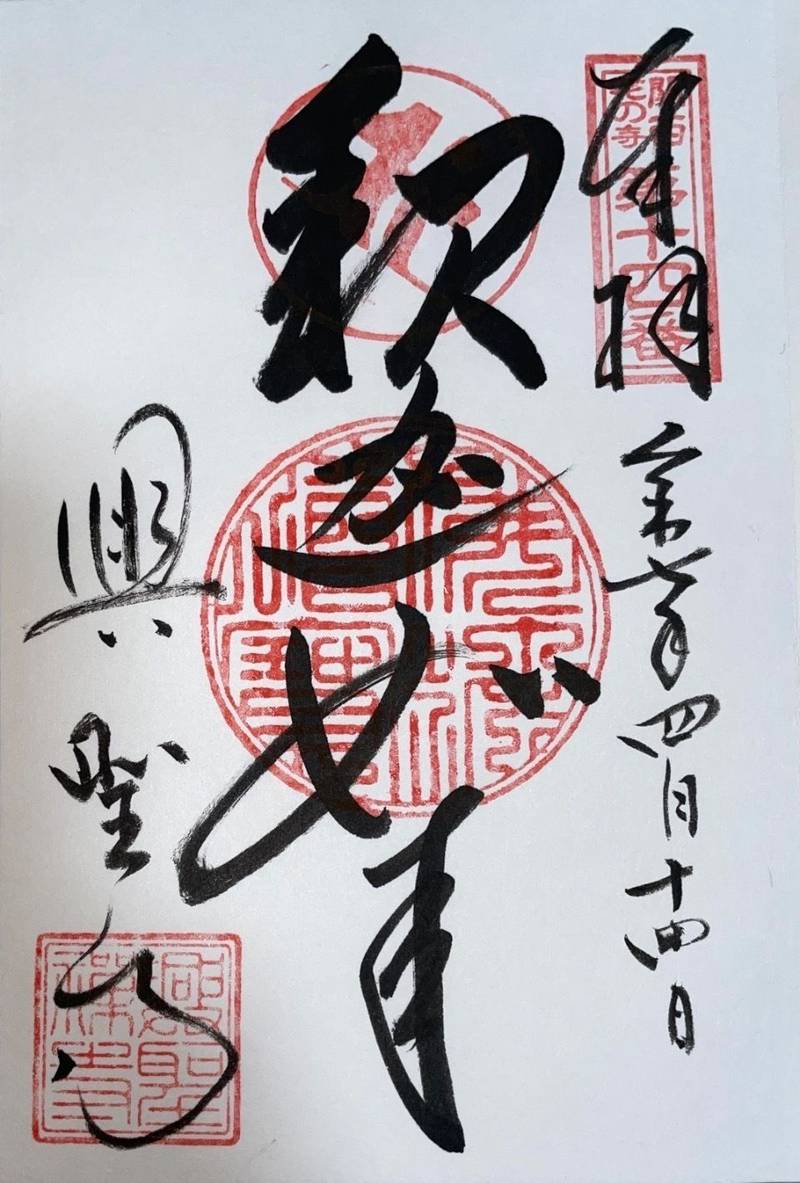 奉拝
関西花の寺
第十四番
令和七年四月十四日
釈迦如来
興聖寺
興聖禪寺